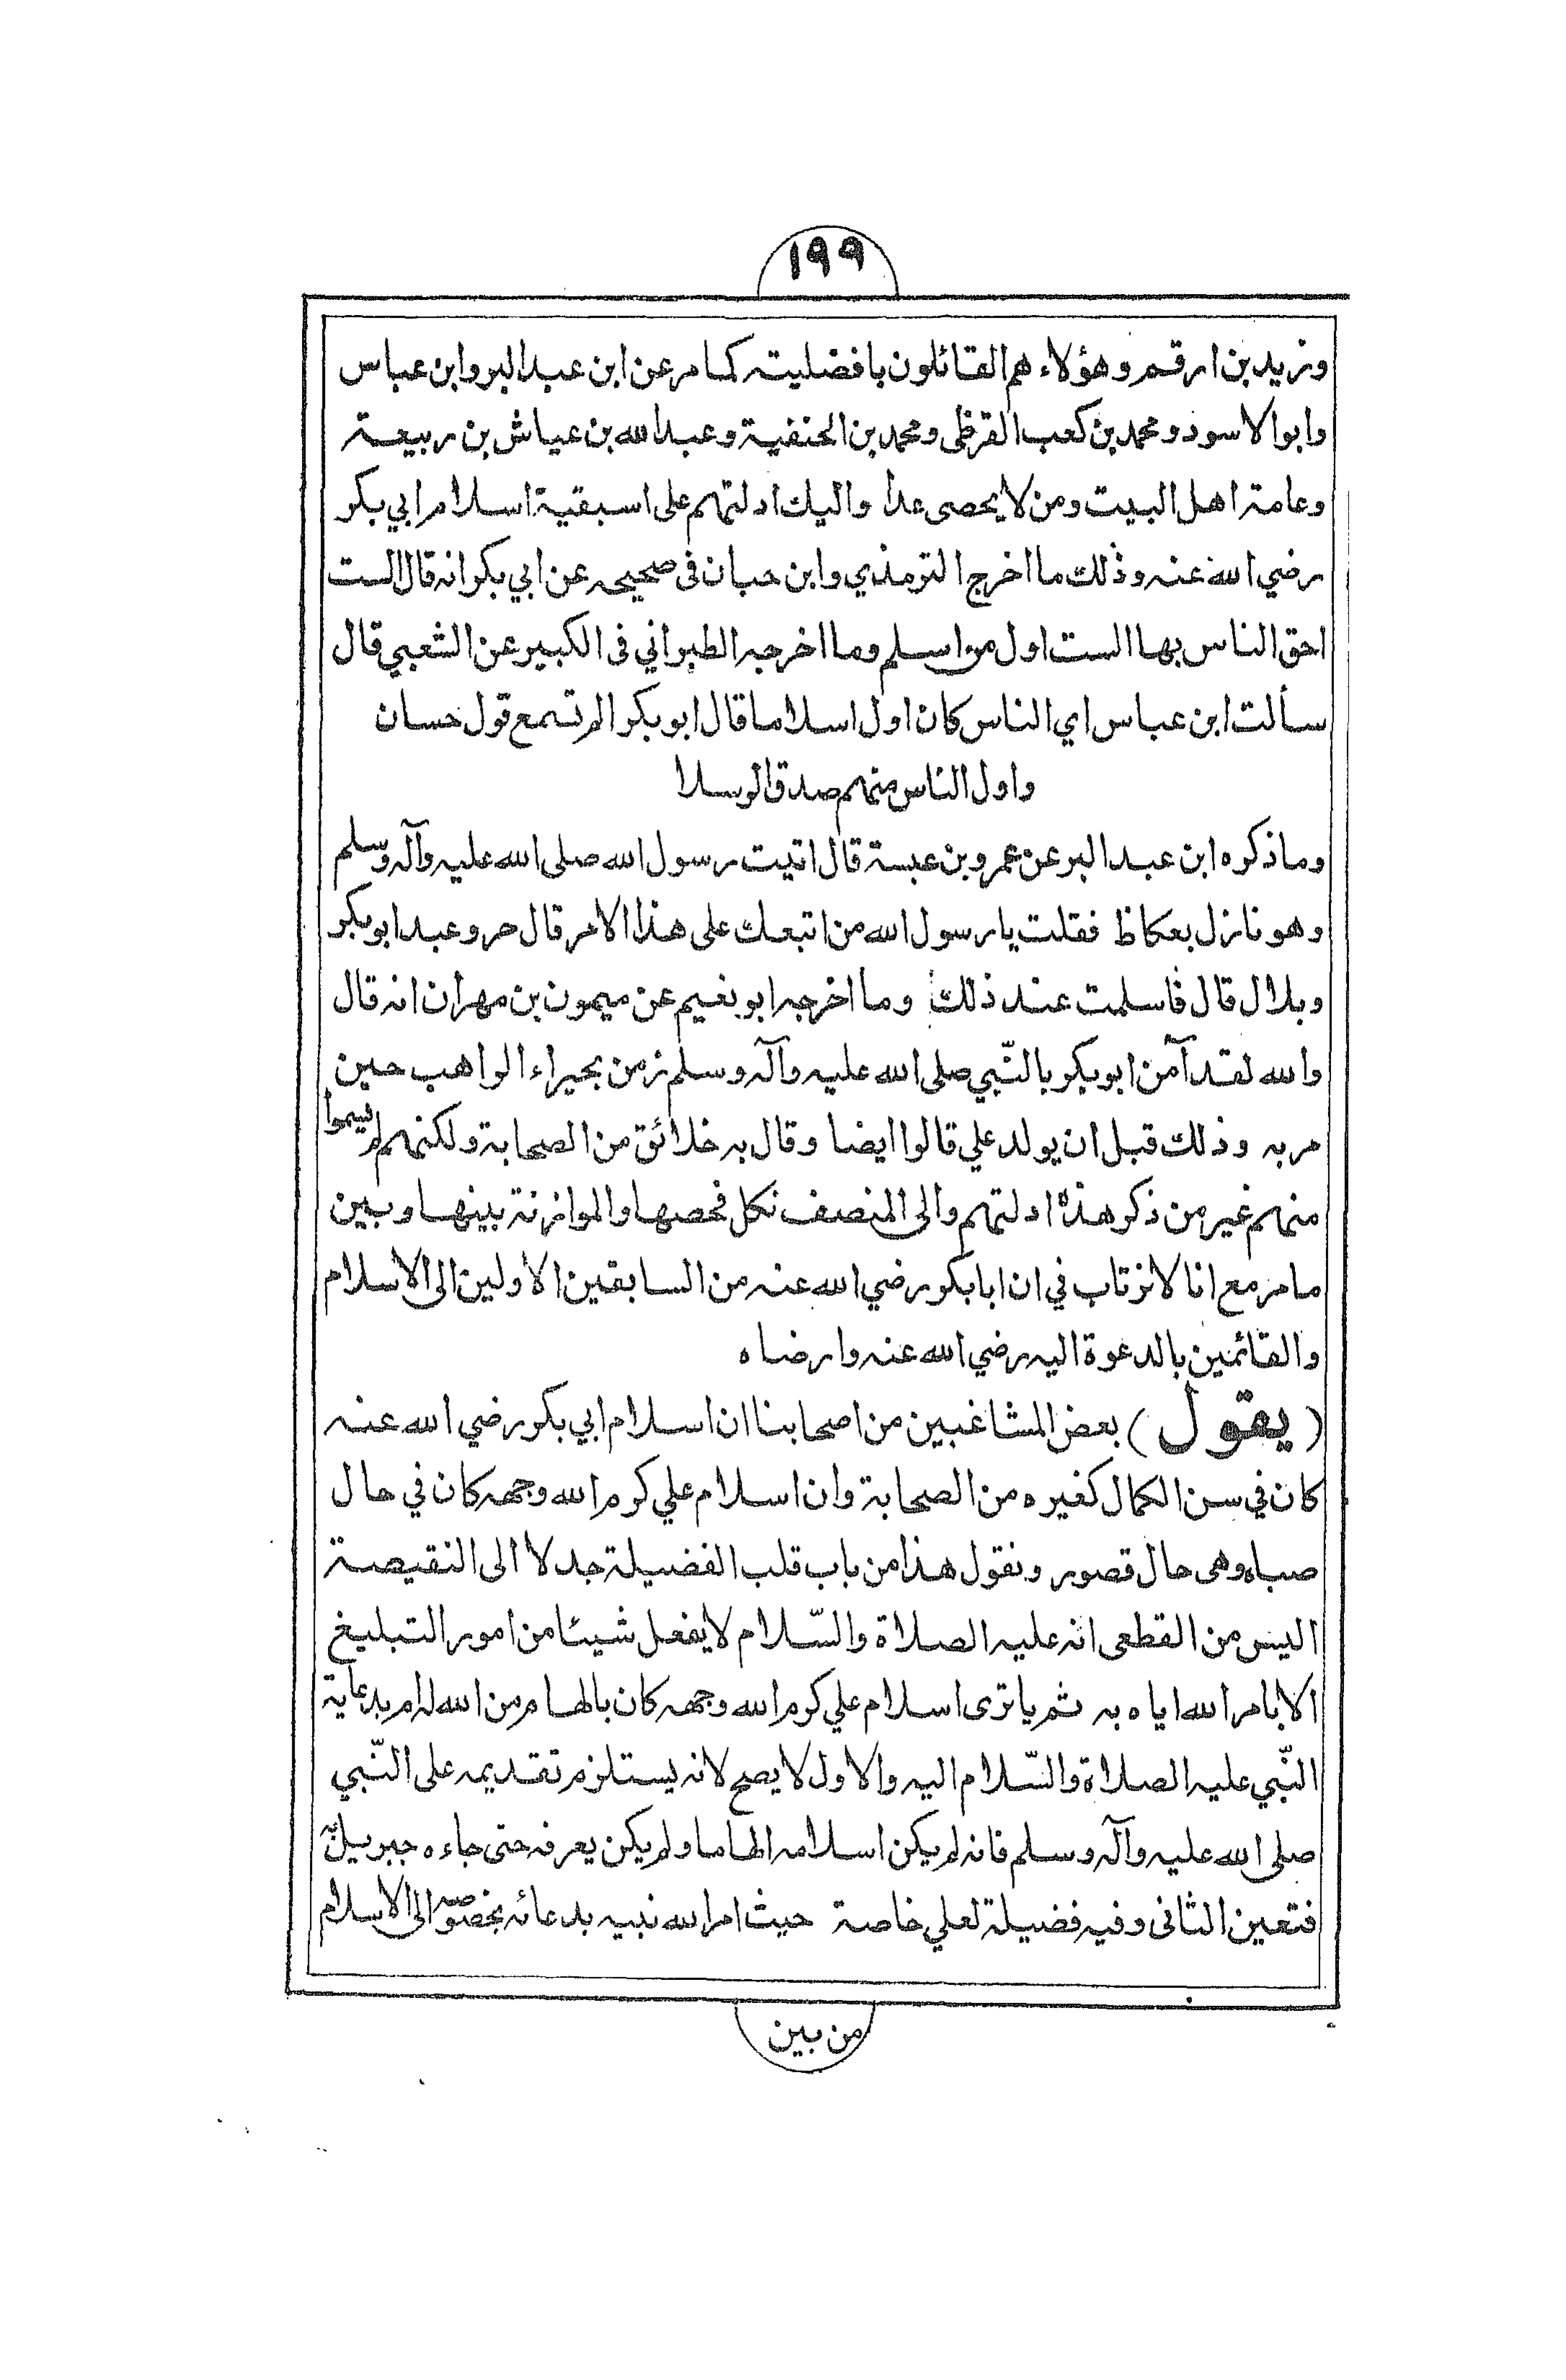 ١٩٩
وزيد بن ارقم وهؤلاء هم القائلون بافضليته كما مر عن ابن عبد البر وابن عباس
وابو الاسود ومحمد بن كعب القرظى ومحمد بن الحنفية وعبد الله بن عياش بن ربيعة
وعامة اهل البيت ومن لا يحصى عدا واليك ادلتهم على اسبقية اسلام ابي بكر
رضي الله عنه وذلك ما اخرج الترمذي وابن حبان فى صحيحه عن ابي بكر انه قال الست
احق الناس بها الست اول من اسلم وما اخرجه الطبراني فى الكبير عن الشعبي قال
سألت ابن عباس اي الناس كان اول اسلاما قال ابو بكر الم تسمع قول حسان
واول الناس منهم صدق الرسلا
وما ذكره ابن عبد البر عن عمرو بن عبسة قال اتيت رسول الله صلى الله عليه وآله وسلم
وهو نازل بعكاظ فقلت يا رسول الله من اتبعك على هذا الامر قال حر وعبد ابو بكر
وبلال قال فاسلمت عند ذلك وما اخرجه ابو نعيم عن ميمون بن مهران انه قال
والله لقد آمن ابو بكر بالنّبي صلى الله عليه وآله وسلم زمن بحيراء الراهب حين
مر به وذلك قبل ان يولد علي قالوا ايضا وقال به خلائق من الصحابة ولكنهم لم يسموا
منهم غير من ذكر هذه ادلتهم والى المنصف نكل فحصها والموازنة بينها وبين
ما مر مع انا لا نرتاب في ان ابا بكر رضي الله عنه من السابقين الاولين الى الاسلام
والقائمين بالدعوة اليه رضي الله عنه وارضاه
(يقول) بعض المشاغبين من اصحابنا ان اسلام ابي بكر رضي الله عنه
كان في سن الكمال كغيره من الصحابة وان اسلام علي كرم الله وجهه كان في حال
صباه وهى حال قصور ونقول هذا من باب قلب الفضيلة جدلا الى النقيصة
اليس من القطعى انه عليه الصلاة والسّلام لا يفعل شيئا من امور التبليغ
الا بامر الله اياه به ثم يا ترى اسلام علي كرم الله وجهه كان بالهام من الله له ام بدعاية
النّبي عليه الصلاة والسّلام اليه والاول لا يصح لانه يستلزم تقديمه على النّبي
صلى الله عليه وآله وسلم فانه لم يكن اسلامه الهاما ولم يكن يعرفه حتى جاءه جبريل به
فتعين الثانى وفيه فضيلة لعلي خاصة حيث امر الله نبيه بدعائه بخصوصه الى الاسلام
من بين